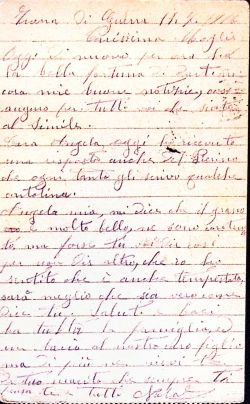 Zona Di Guerra 17.7.1916
Carissima Moglie
Oggi Di nuovo per ora sia
la bella fortuna di
cara mie buone notizie, cosi
auguro per tutti voi da
al simile.
Cara Angela oggi ho ricevuto
una risposta anche del Pierino
che ogni tanto gli scrivo qualche
cartolina.
Angela mia, mi dice che il grano
e molto bello, ne sono contento
ma forse tu
per non dir altro, che io ho
sentito che è anche tempestato
sarà meglio che sia
Dice tu, i saluti e baci
ha tutta la famiglia, ed
un bacio al nostro caro figlio
ma di più
tuo marito che sempre ti
pensa te e tutti Natale